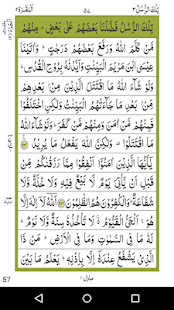 تِلْكَ الرُّسُلُ ٣ ٥٧ اَلْبَقَرَة ٢
تِلْكَ الرُّسُلُ فَضَّلْنَا بَعْضَهُمْ عَلٰى بَعْضٍ ۘ مِنْهُمْ
مَّنْ كَلَّمَ اللّٰهُ وَرَفَعَ بَعْضَهُمْ دَرَجٰتٍ ؕ وَاٰتَيْنَا
عِيْسَى ابْنَ مَرْيَمَ الْبَيِّنٰتِ وَاَيَّدْنٰهُ بِرُوْحِ الْقُدُسِ ؕ
وَلَوْ شَآءَ اللّٰهُ مَا اقْتَتَلَ الَّذِيْنَ مِنْۢ بَعْدِهِمْ مِّنْۢ
بَعْدِ مَا جَآءَتْهُمُ الْبَيِّنٰتُ وَلٰكِنِ اخْتَلَفُوْا
فَمِنْهُمْ مَّنْ اٰمَنَ وَمِنْهُمْ مَّنْ كَفَرَ ؕ وَلَوْ شَآءَ اللّٰهُ
مَا اقْتَتَلُوْا ۫ وَلٰكِنَّ اللّٰهَ يَفْعَلُ مَا يُرِيْدُ
يٰۤاَيُّهَا الَّذِيْنَ اٰمَنُوْۤا اَنْفِقُوْا مِمَّا رَزَقْنٰكُمْ مِّنْ
قَبْلِ اَنْ يَّاْتِيَ يَوْمٌ لَّا بَيْعٌ فِيْهِ وَلَا خُلَّةٌ وَّلَا
شَفَاعَةٌ ؕ وَالْكٰفِرُوْنَ هُمُ الظّٰلِمُوْنَ اَللّٰهُ لَاۤ اِلٰهَ اِلَّا
هُوَ ۚ اَلْحَيُّ الْقَيُّوْمُ ۚ لَا تَاْخُذُهٗ سِنَةٌ وَّلَا نَوْمٌ ؕ لَهٗ
مَا فِي السَّمٰوٰتِ وَمَا فِي الْاَرْضِ ؕ مَنْ ذَا
الَّذِيْ يَشْفَعُ عِنْدَهٗۤ اِلَّا بِاِذْنِهٖ ؕ يَعْلَمُ مَا بَيْنَ
57